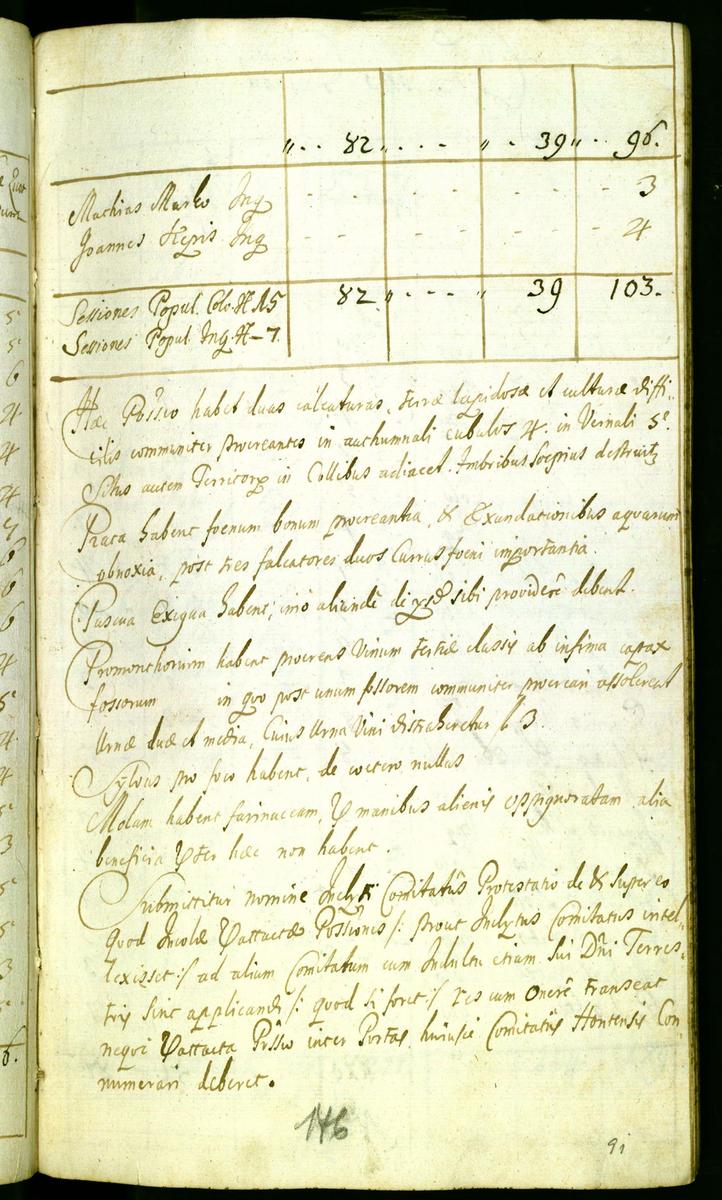 „ . . 82 „ . . . „ . 39 „ . . 96.
Mathias Marko Inq . . . . 3
Joannes Inq . . . . 4
Sessiones Popul. Colo. H 15 82 „ . . . „ 39 103.
Sessiones Popul. Inq. H – 7
Hæc Possio habet duas calcaturas, terræ lapidosæ et culturæ diffi„
cilis communiter procreantes in authumnali cubulos 4. in Vernali 5.
Situs autem Territory in Collibus adiacet. Imbribus soepius
Prata habent foenum bonum procreantia, & Exundationibus aquarum
obnoxia, post tres falcatores duos Currus foeni importantia.
Pascua Exigua habent, imò aliundè de sibi providere debent.
Promonthorium habent procrens Vinum tertiæ classis ab infima capax
fossorum in quo post unum fossorem communiter procreari assolerent
Urnæ duæ et media, Cuius Urna Vini distraheretur f 3.
Sylvas pro foco habent, de coetero nullas
Molam habent farinaceam, manibus alienis oppignoratam alia
beneficia hæc non habent.
Submittitur nomine Inclyti Comitatûs Protestatio de & super eo
quod Incolæ Possionis /: prout Inclytus Comitatus intel„
lexisset :/ ad alium Comitatum cum Indultu etiam sui Dni Terres„
tris sint applicandi /: quod si foret :/ res cum Onere transeat
neqve Possio inter Portas huius Comitatûs Hontensis Con
numerari deberet.
146
91